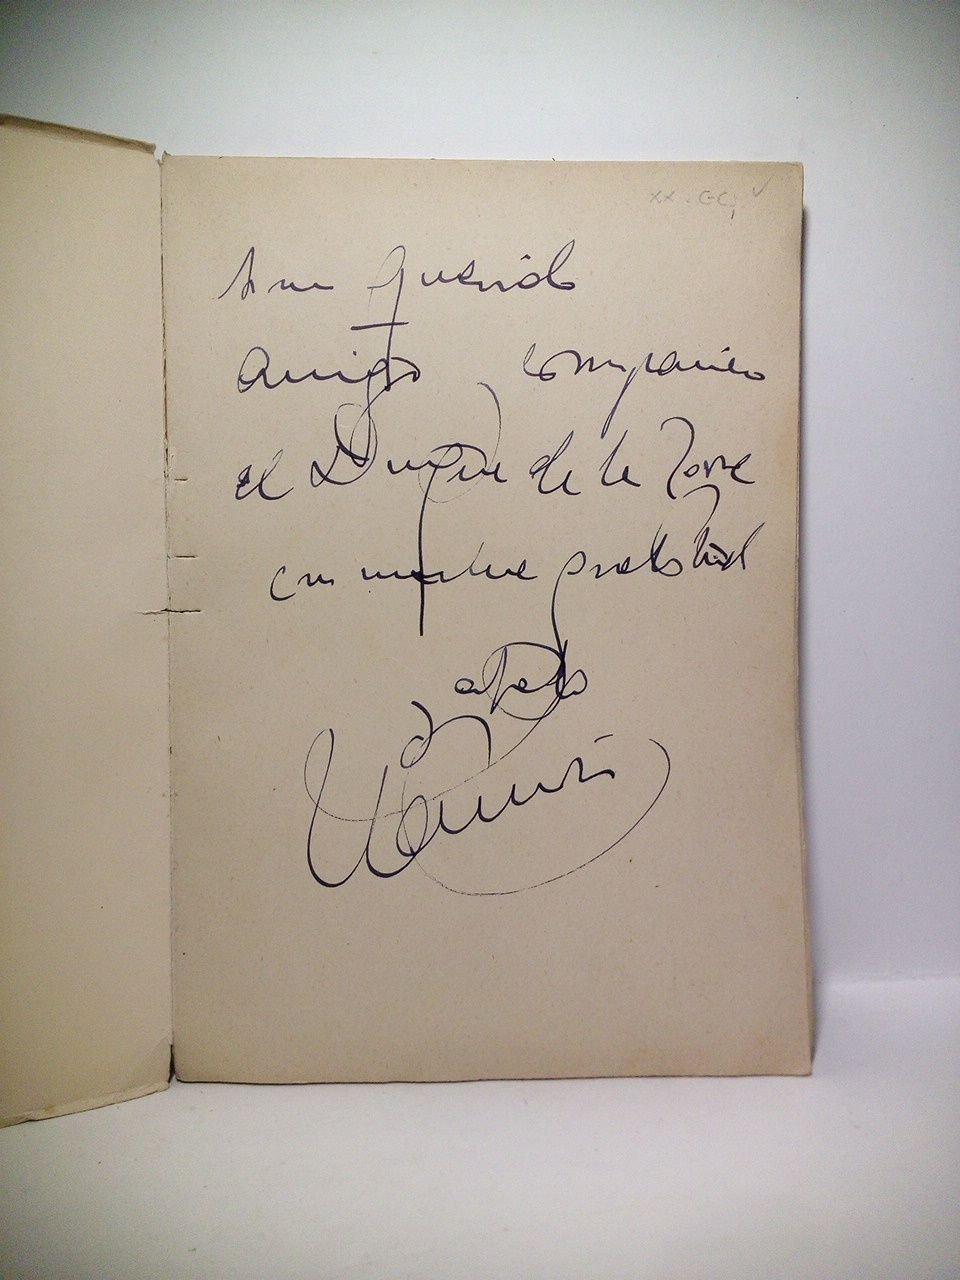 XX. GC,
A mi querido
amigo compañero
el Duque de la Torre
con mucha
afecto